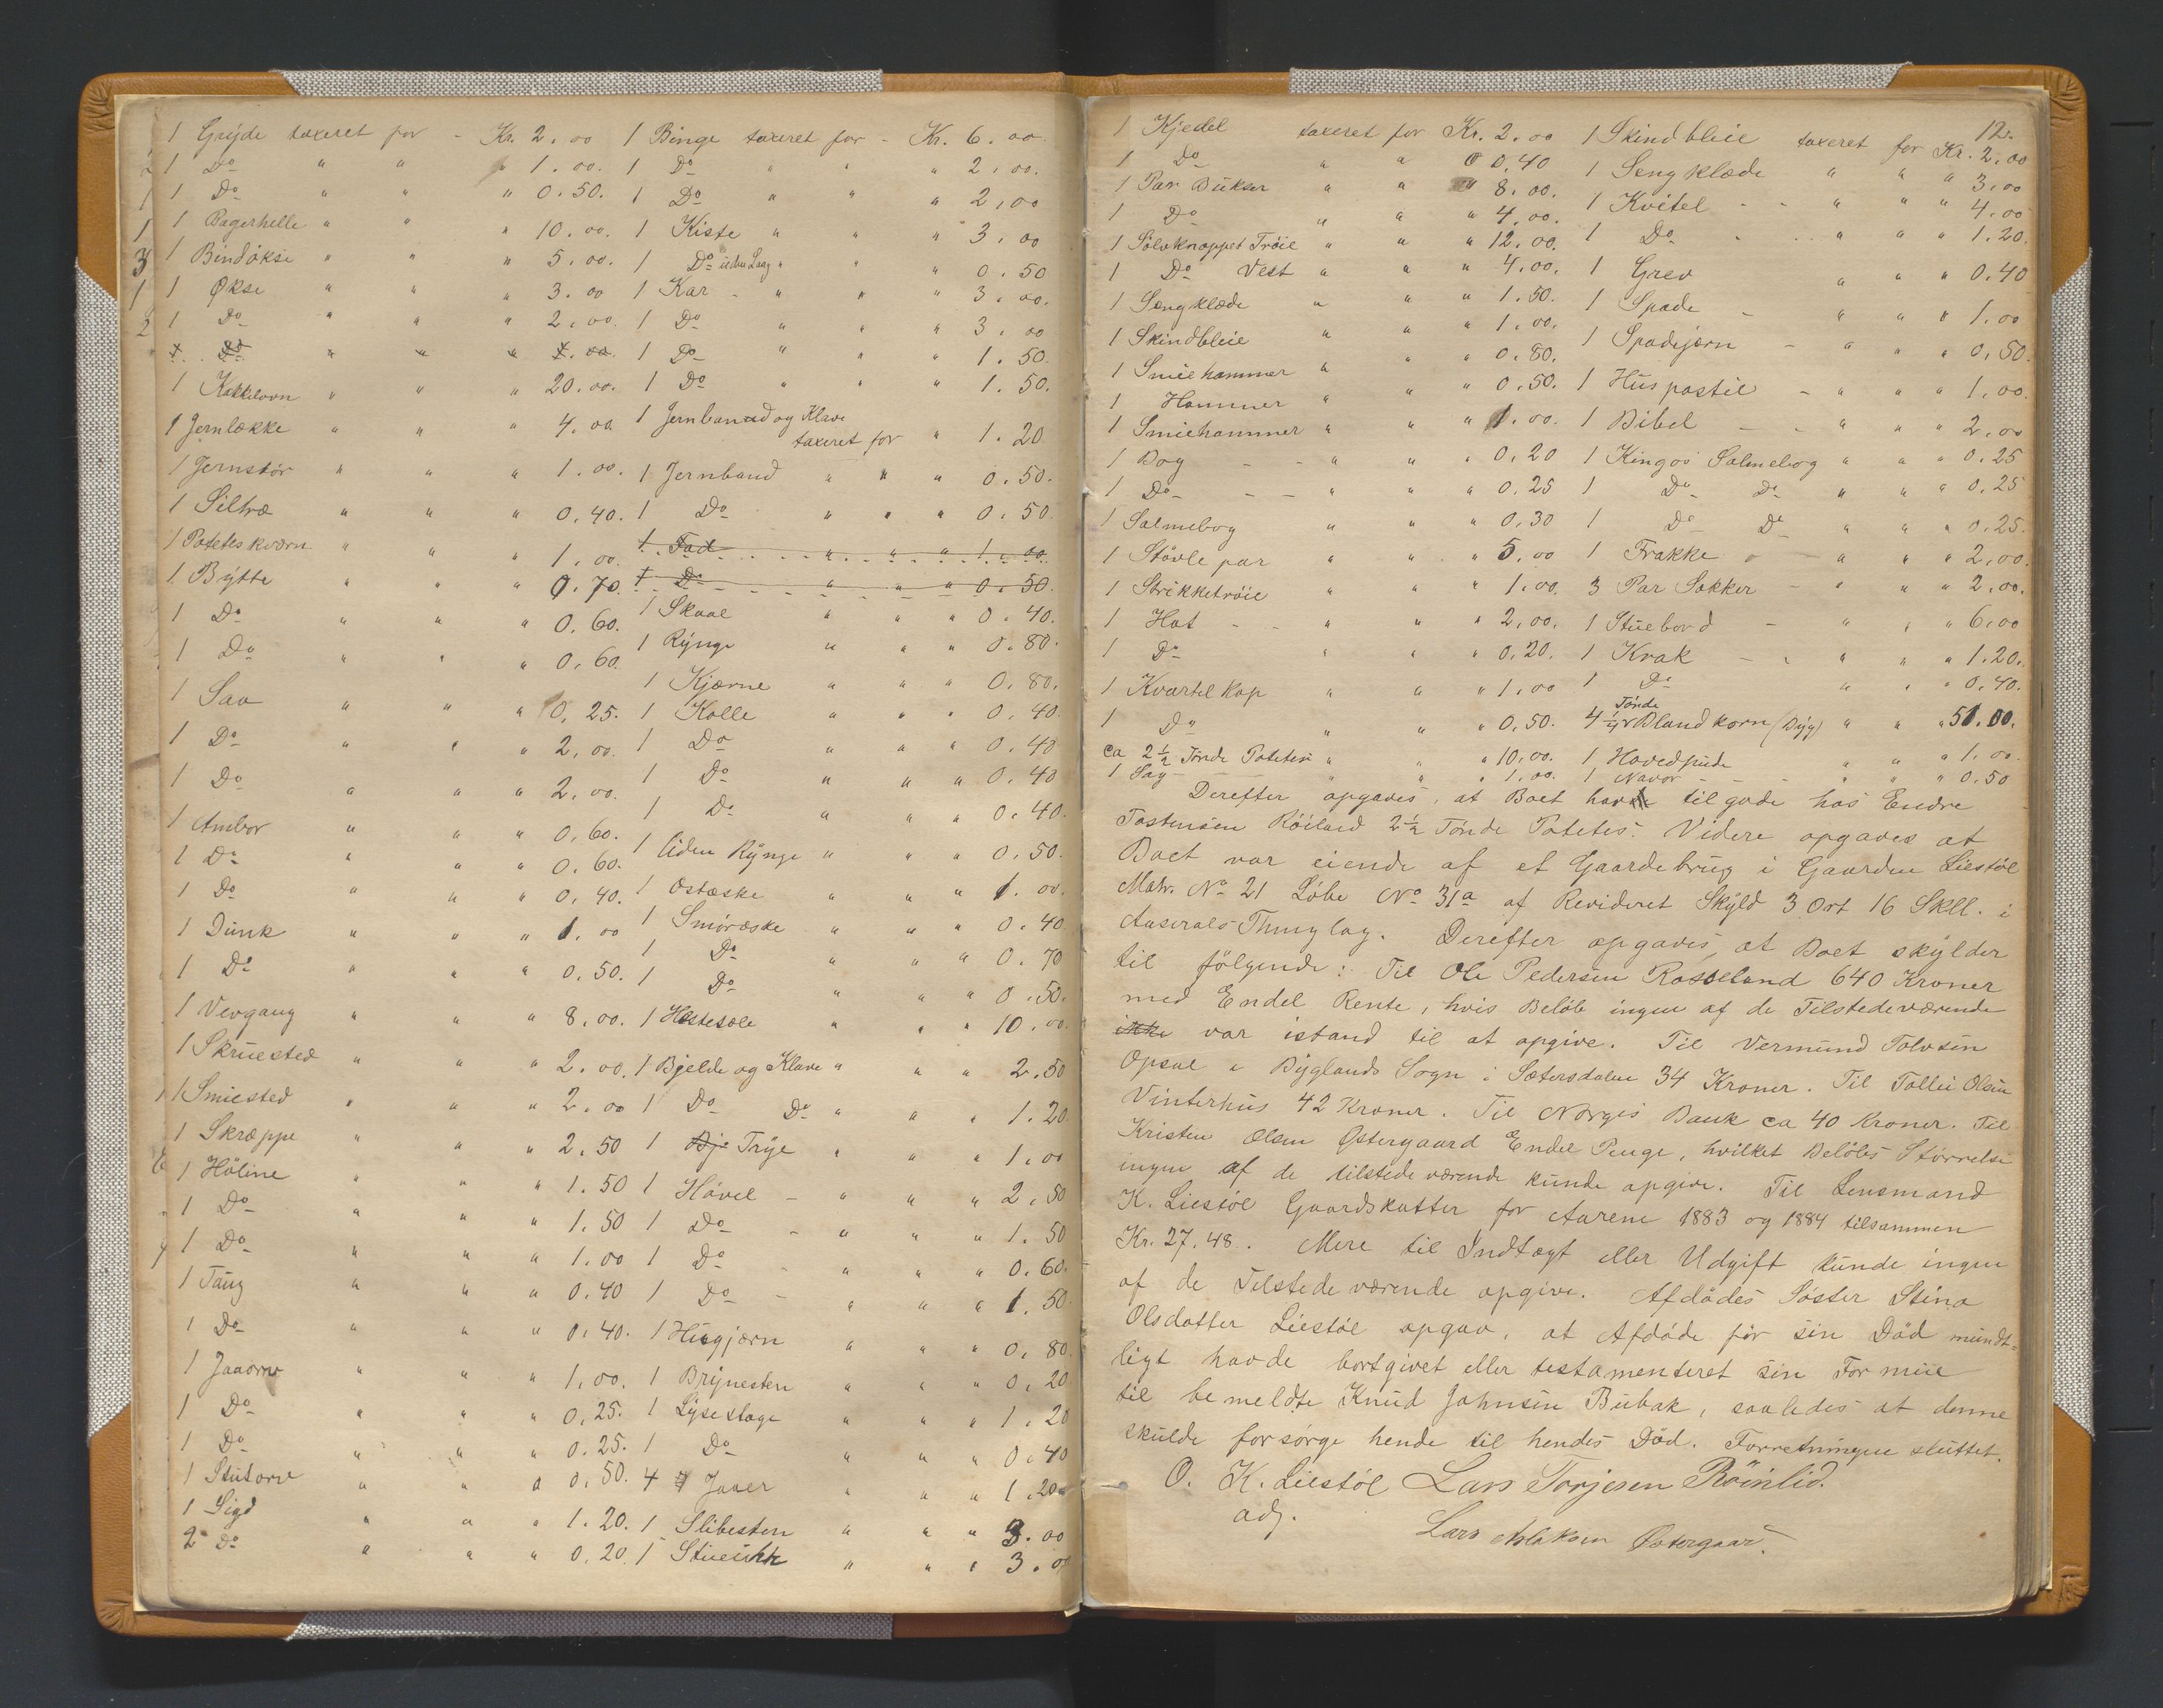 1 Gryde taxeret for - Kr. 2.00
1 Do " " " 1.00.
1 Do " " " 0.50.
1 Bagerhelle " " " 10.00.
1 Bindøkse " " " 5.00.
1 Økse " " " 3.00
1 Do " " " 2.00.
1 Do " " " 1.00.
1 Kakkelovn " " " 20.00.
1 Jernlække " " " 4.00
1 Jernstør " " " 1.00.
1 Siltræ " " " 0.40.
1 Poteteskværn " " " 1.00.
1 Bytte " " " 0.70.
1 Do " " " 0.60.
1 Do " " " 0.60.
1 Saa " " " 0.25.
1 Do " " " 2.00.
1 Do " " " 2.00.
1 Ambor " " " 0.60.
1 Do " " " 0.60.
1 Do " " " 0.40.
1 Dunk " " " 1.00
1 Do " " " 0.50.
1 Vevgang " " " 8.00.
1 Skruested " " " 2.00.
1 Smiested " " " 2.00
1 Skræppe " " " 2.50
1 Höline " " " 1.50
1 Do " " " 1.50
1 Do " " " 1.00
1 Tang " " " 0.40
1 Do " " " 0.40.
1 Jaaorv " " " 1.00.
1 Do " " " 0.25.
1 Do " " " 0.25.
1 Stutorv " " " 0.50.
1 Sigd " " " 1.20.
2 Do " " " 0.20.
1 Binge taxeret for - Kr. 6.00
1 Do " " " 2.00.
1 Do " " " 2.00
1 Kiste " " " 3.00
1 Do uden Laag " " " 0.50
1 Kar - " " " 3.00.
1 Do " " " 3.00
1 Do " " " 1.50.
1 Do " " " 1.50.
1 Jernbaand og Klave
taxeret for " 1.20
1 Jernbaand " " " 0.50.
1 Do " " " 0.50.
1 Fad " " " 1.00.
1 Do " " " 0.50.
1 Skaal " " " 0.40.
1 Rynge " " " 0.80.
1 Kjærne " " " 0.80.
1 Kolle " " " 0.40.
1 Do " " " 0.40
1 Do " " " 0.40
1 Do " " " 0.40.
1 liden Rynge " " " 0.50.
1 Ostæske " " " 1.00.
1 Smöræske " " " 0.40
1 Do " " " 0.70
1 Do " " " 0.50.
1 Hestesele " " " 10.00.
1 Bjelde og Klave " " " 2.50
1 Do Do " " " 1.20
1 Bje Tryge " " " 1.00
1 Hövel - " " " 2.50
1 Do - " " " 1.50
1 Do - " " " 0.60.
1 Do - " " " 1.50.
1 Hugjærn " " " 0.80.
1 Brynesten " " " 0.20
1 Lysestage " " " 1.20
1 Do " " " 0.40
4 Jaaer " " " 1.20
1 Slibesten " " " 3.00
1 Stueuhr " " " 3.00
12.
1 Kjedel taxeret for Kr. 2.00
1 Do " " " 0.40
1 Par Bukser " " " 8.00.
1 Do " " " 4.00.
1 Sölvknappet Tröie " " " 12.00.
1 Do Vest " " " 4.00.
1 Sengklæde " " " 1.50.
1 Skindbleie " " " 1.00.
1 Smiehammer " " " 0.80.
1 Hammer " " " 0.50.
1 Smiehammer " " " 1.00.
1 Bog - - " " " 0.20
1 Do - - " " " 0.25
1 Salmebog " " " 0.30
1 Stövle par " " " 5.00
1 Strikketröie " " " 1.00.
1 Hat - - " " " 2.00.
1 Do " " " 0.20.
1 Kvartel Kop " " " 1.00
1 Do " " " 0.50.
ca 2½ Tönde Poteter " " " 10.00.
1 Sag - " " " 1.00.
1 Skindbleie taxeret for Kr. 2.00
1 Sengklæde " " " 3.00
1 Kvitel - - " " " 4.00
1 Do - " " " 1.20.
1 Grev " " " 0.40
1 Spade - " " " 1.00
1 Spadejærn - " " " 0.50.
1 Huspostil - " " " 1.00.
1 Bibel - - " " " 2.00
1 Kingos Salmebog " " " 0.25
1 Do Do " " " 0.25
1 Do Do " " " 0.25.
1 Frakke " " " 2.00.
3 Par Sokker - " " " 2.00.
1 Stuebord - " " " 6.00
1 Krak - " " " 1.20.
1 Do " " " 0.40.
4¼ Tönde Blandkorn (Byg) " " " 51.00.
1 Hovedpude " " " 1.00.
1 Navar - - " " " 0.50
Derefter opgaves, at Boet havde tilgode hos Endre
Tostensen Röiland 2½ Tönde Potetes. Videre opgaves at
Boet var eiende af et Gaardebrug i Gaarden Liestöl
Matr. No 21 Löbe No 31a af Revideret Skyld 3 Ort 16 Skll. i
Aaserals Thinglag. Derefter opgaves, at Boet skylder
til fölgende: Til Ole Pedersen Rosseland 640 Kroner
med Endel Rente, hvis Belöb ingen af de Tilstedeværende
ikke var istand til at opgive. Til Vermund Tolvsen
Opsal i Byglands Sogn i Sætersdalen 34 Kroner. Til Tollei Olsen
Vinterhus 42 Kroner. Til Norges Bank ca 40 Kroner. Til
Kristen Olsen Østergaard Endel Penge, hvilket Belöbs Störrelse
ingen af de tilstedeværende kunde opgive. Til Lensmand
K. Liestöl Gaardskatter for Aarene 1883 og 1884 tilsammen
Kr. 27.48. Mere til Indtægt eller Udgift kunde ingen
af de Tilstedeværende opgive. Afdödes Söster Stina
Olsdatter Liestöl opgav, at Afdöde för sin Död mundt=
ligt havde bortgivet eller testamenteret sin Formue
til bemeldte Knud Johnsen Bubak, saaledes at denne
skulde forsörge hende til hendes Död. Forretningen sluttet.
O. K. Liestöl Lars Torjesen Röinlid.
adj.
Lars Aslaksen Østergaar.